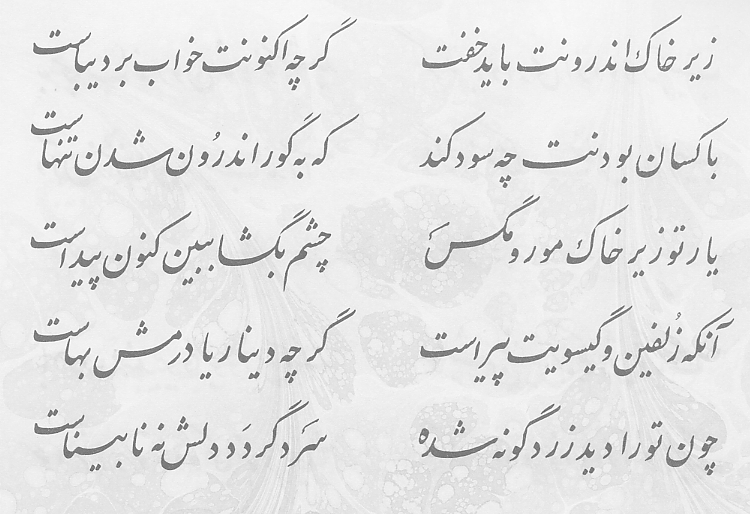 زیر خاک اندرونت باید خفت گرچه اکنونت خواب بر دیباست
باکسان بودنت چه سود کند که به گور اندرُون شدن تنهاست
یار تو زیر خاک مور و مگسَ چشم بگشا ببین کنون پیداست
آنکه زُلفین و گیسویت پیراست گرچه دینار یا درمش بهاست
چون تو را دید زردگونه شده سَرد گردَد دلش نه نابیناست